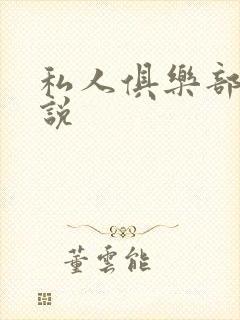 私人俱樂部
說
董雲能